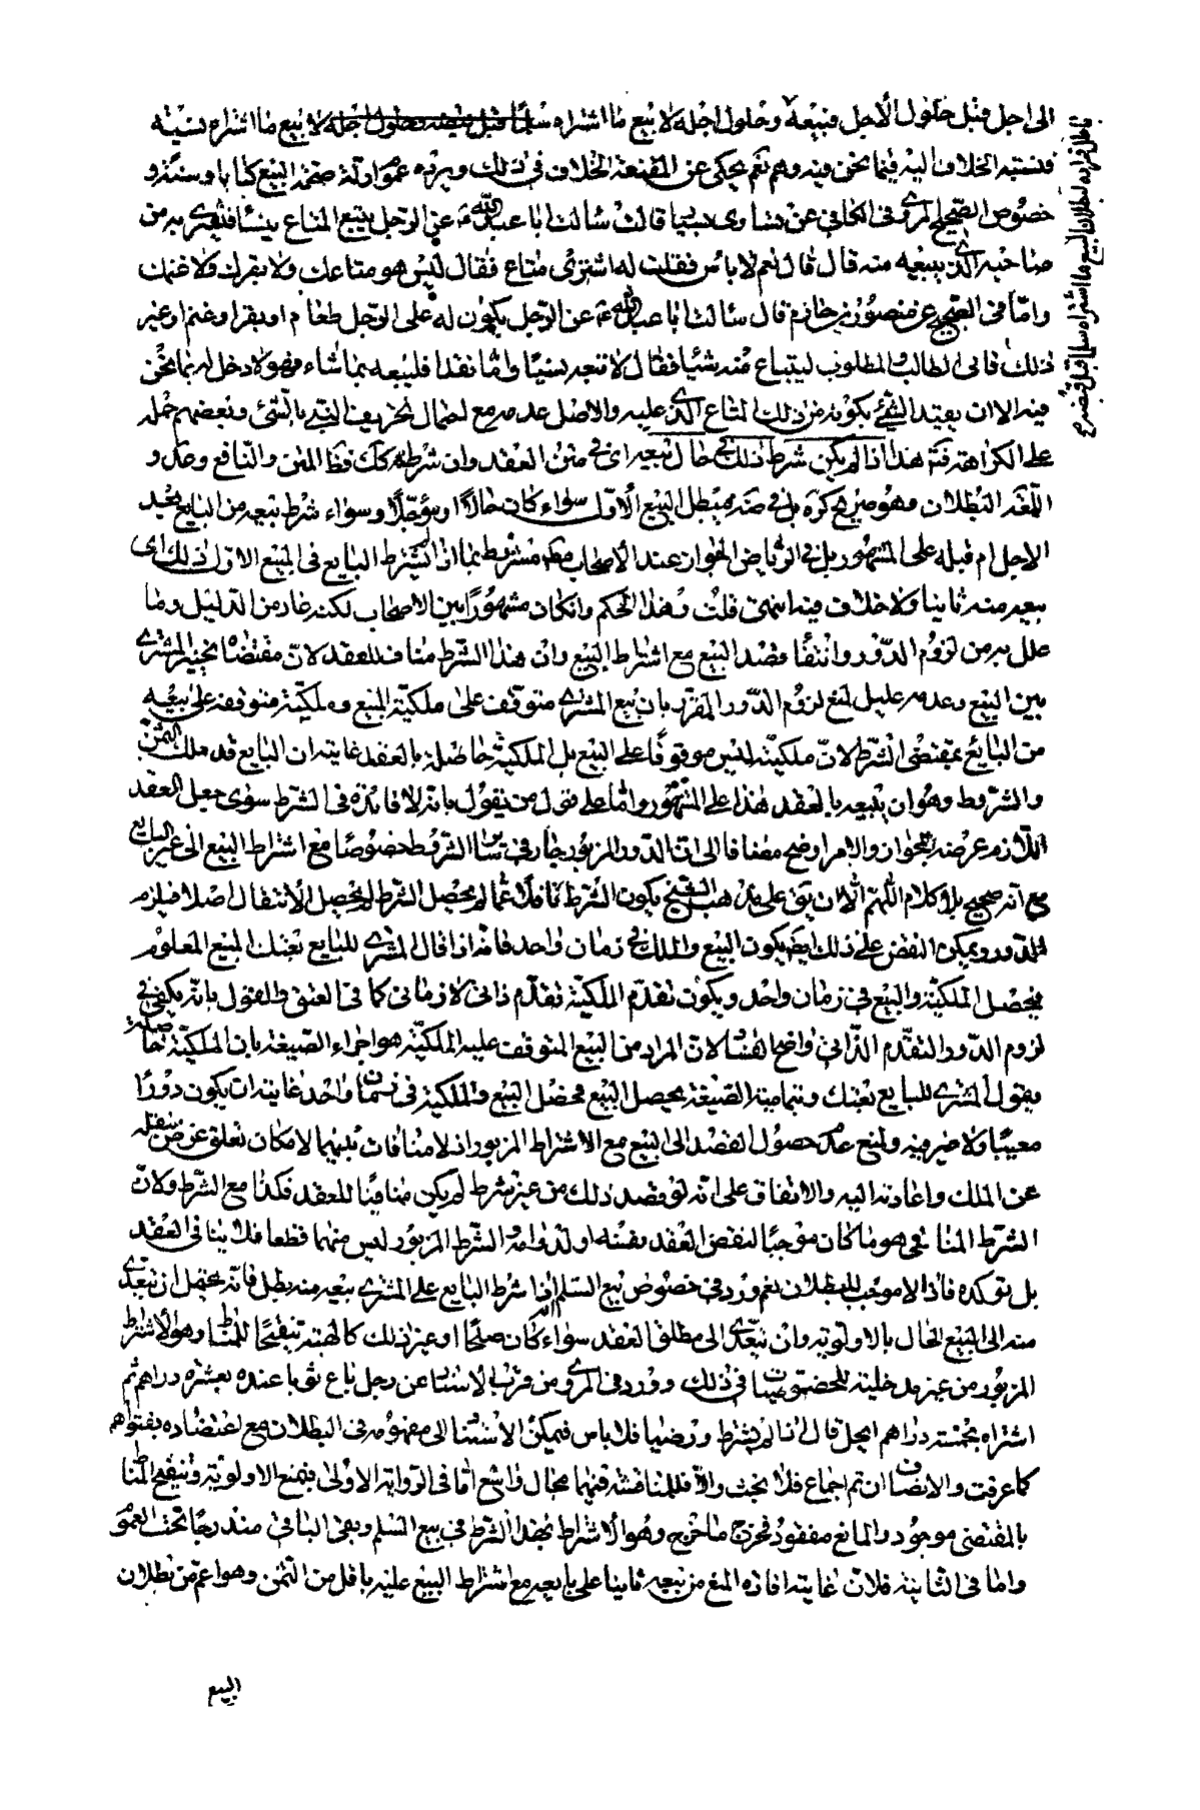 الى اجل قبل حلول الأجل فبيعه وحلول اجله لا بيع ما اشتراه سلما قبل حلول اجله لا بيع ما اشتراه نسيئة
فنسبة الخلاف اليه فيما نحن فيه وهم نعم يحكى عن المقنعة الخلاف في ذلك ويرده عموم ادلة صحة البيع كتابا وسنة و
خصوص الصحيح المروي في الكافي عن بشار بن يسار قال سالت ابا عبد الله ع عن الرجل يبيع المتاع بنسأ فيشتريه من
صاحبه الذي يبيعه منه قال قال نعم لا باس فقلت له اشتري متاعي فقال ليس هو متاعك ولا بقرك ولا غنمك
واما في الصحيح عن منصور بن حازم قال سالت ابا عبد الله ع عن الرجل يكون له على الرجل طعام او بقر او غنم او غير
ذلك فاتى الطالب المطلوب ليبتاع منه شيئا فقال لا تبعه نسيئا واما نقدا فليبعه بما شاء فهو لا دخل له بما نحن
فيه الا ان يقيد الشيئ بكونه من ذلك المتاع الذي عليه والاصل عدمه مع احتمال تحريف النسئ بالشئ وبعضهم حمله
على الكراهة فت هذا اذا لم يكن شرط ذلك في حال بيعه اي في متن العقد وان شرطه كك فظ المتن والنافع وعد و
اللمعة البطلان وهو صريح كره بل في ضه مبطل البيع الأول سواء كان حالا او مؤجلا وسواء شرط بيعه من البايع بعد
الاجل ام قبله على المشهور بل في الرياض الجواز عند الأصحاب مط مشروط بما اذا لم يشترط البايع في البيع الاول ذلك اي
بيعه منه ثانيا ولا خلاف فيه انتهى قلت وهذا الحكم وان كان مشهورا بين الاصحاب لكنه عار من الدليل وما
علل به من لزوم الدور وانتفاء قصد البيع مع اشتراط البيع وان هذا الشرط مناف للعقد لان مقتضاه تخيير المشتري
بين البيع وعدمه عليل لمنع لزوم الدور المقرر بان بيع المشتري متوقف على ملكية المبيع وملكيته متوقفة على بيعه
من البايع بمقتضى الشرط لان ملكيته ليس موقوفا على البيع بل الملكية حاصلة بالعقد غايته ان البايع قد ملك الثمن
والشروط وهو ان يبيعه بالعقد هذا على المشهور واما على قول من يقول بانه لا فائدة في الشرط سوى جعل العقد
اللازم عرضة للجواز والامر اوضح مضافا الى ان الدور المزبور جار في سائر الشروط خصوصا مع اشتراط البيع الى غير البايع
مع انه صحيح بلا كلام اللهم الا ان يبنى على مذهب الشيخ بكون الشرط فما لم يحصل الشرط لم يحصل الأنتقال اصلا فيلزم
الدور ويمكن النقض على ذلك ايض بكون البيع والملك في زمان واحد فانه اذا قال المشتري للبايع بعتك المبيع المعلوم
فيحصل الملكية والبيع في زمان واحد ويكون تقدم الملكية تقدم ذاتي لا زماني كما في العتق والقول بانه يكفي في
لزوم الدور التقدم الذاتي واضح الفساد لان المراد من البيع المتوقف عليه الملكية هو اجراء الصيغة بان الملكية
بقول المشتري للبايع بعتك وبتمامية الصيغة يحصل البيع فحصل البيع والملكية في زمان واحد غايته ان يكون دورا
معيبا ولا ضير فيه ولمنع عدم حصول القصد الى البيع مع الاشتراط المزبور اذ لا منافات بينهما لامكان تعلق غرض بنقله
عن الملك واعادته اليه والاتفاق على انه لو قصد ذلك من غير شرط لم يكن منافيا للعقد فكذا مع الشرط ولان
الشرط المنافي هو ما كان موجبا لنقض العقد بنفسه او لدوامه والشرط المزبور ليس منهما قطعا فلا ينافي العقد
بل توكده فاذا لا موجب للبطلان نعم ورد في خصوص بيع السلم اذا شرط البايع على المشتري بيعه منه بطل فانه يحتمل ان نتعدى
منه الى البيع الحال بالاولوية وان نتعدى الى مطلق العقد سواء كان صلحا او غير ذلك كالهبة تنقيحا للمناط وهو الأشتراط
المزبور من غير مدخلية للخصوصيات في ذلك وورد في المروي عن قرب الأسناد عن رجل باع ثوبا عنده بعشرة دراهم ثم
اشتراه بخمسة دراهم ايحل قال اذا لم يشترط ورضيا فلا باس فيمكن الأستناد الى مفهومه في البطلان مع اعتضاده بفتواهم
كما عرفت والانصاف ان تم اجماع فلا بحث والا فللمناقشة فيهما مجال واسع اما في الرواية الاولى فبمنع الاولوية وتنقيح المناط
بالمقتضى موجود والمانع مفقود فخرج ما خرج وهو الأشتراط بهذا الشرط في بيع السلم وبقى الباقي مندرجا تحت العموم
واما في الثانية فلان غايته افادة المنع من بيعه ثانيا على بايعه مع اشتراط البيع عليه باقل من الثمن وهو اعم من بطلان
البيع